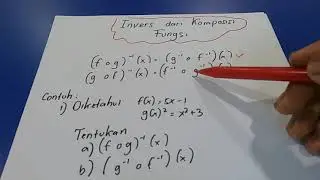 Invers dari Komposisi
Fungsi
(f o g)⁻¹(x) = (g⁻¹ o f⁻¹)(x)
(g o f)⁻¹(x) = (f⁻¹ o g⁻¹)(x)
Contoh:
1) Diketahui f(x) = 5x - 1
g(x) = x² + 3
Tentukan
a) (f o g)⁻¹(x)
b) (g⁻¹ o f⁻¹)(x)